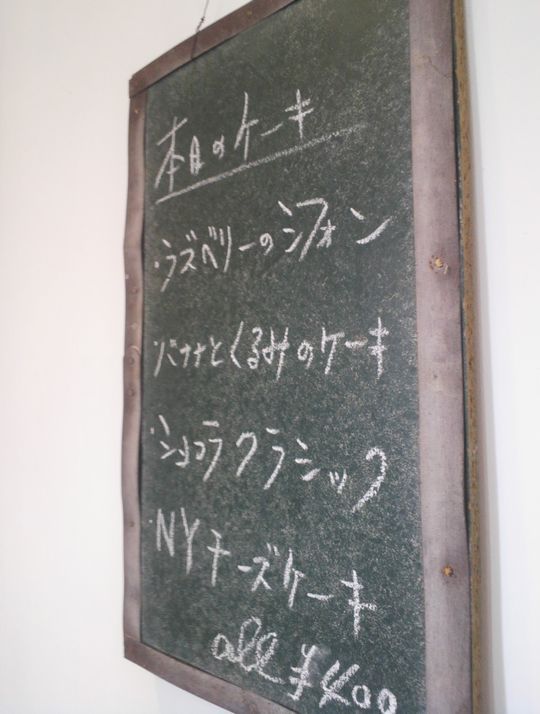 本日のケーキ
・ラズベリーのシフォン
・バナナとくるみのケーキ
・ショコラクラシック
・NYチーズケーキ
all ¥400